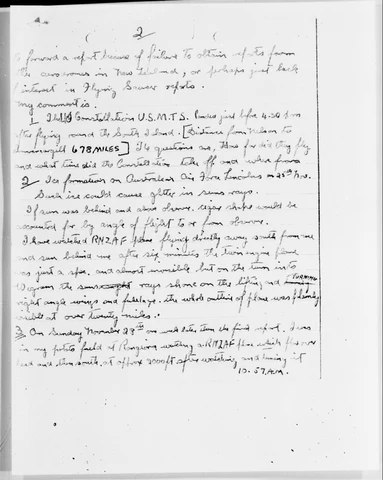 ( 2 )
to forward a report because of failure to obtain reports from
the aerodromes in New Zealand, or perhaps just lack
interest in Flying Saucer reports.
My comment is.
1. The Constellation U.S.M.T.S. landed just before 4.30 p.m.
after flying round the South Island. [Distance from Nelson to
Invercargill 678 MILES] The questions are, How far did they fly
and what time did the Constellation take off and where from
2 Ice formation on Australian Air Force Lincolns on 25th Nov.
Such ice could cause glitter in suns rays.
If sun was behind and above observer, cigar shape would be
accounted for by angle of flight to or from observer.
I have watched RNZAF plane flying directly away south from me
and sun behind me after six minutes the twin engine plane
was just a spot and almost invisible but on the turn into
Wigram the suns rays shone on the tilting and TURNING
right angle wings and fuselage. the whole outline of plane was plainly
visible at over twenty miles.
3 On Sunday November 27th one week later than the first report. I was
in my potato field at Rangiora watching a RNZAF plane which flew over
head and then south. at approx 2000ft after watching and timing it
10.57 A.M.